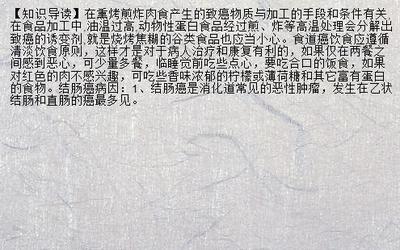 【知识导读】在熏烤煎炸肉食产生的致癌物质与加工的手段和条件有关
在食品加工中,油温过高,动物性蛋白食品经过煎、炸等高温处理会分解出
致癌的诱变剂,就是烧烤焦糊的谷类食品也应当小心。食道癌饮食应遵循
清淡饮食原则，这样才是对于病人治疗和康复有利的，如果仅在两餐之
间感到恶心，可少量多餐，临睡觉前吃些点心，要吃合口的饭食，如果
对红色的肉不感兴趣，可吃些香味浓郁的柠檬或薄荷糖和其它富有蛋白
的食物。结肠癌病因：1、结肠癌是消化道常见的恶性肿瘤，发生在乙状
结肠和直肠的癌最多见。